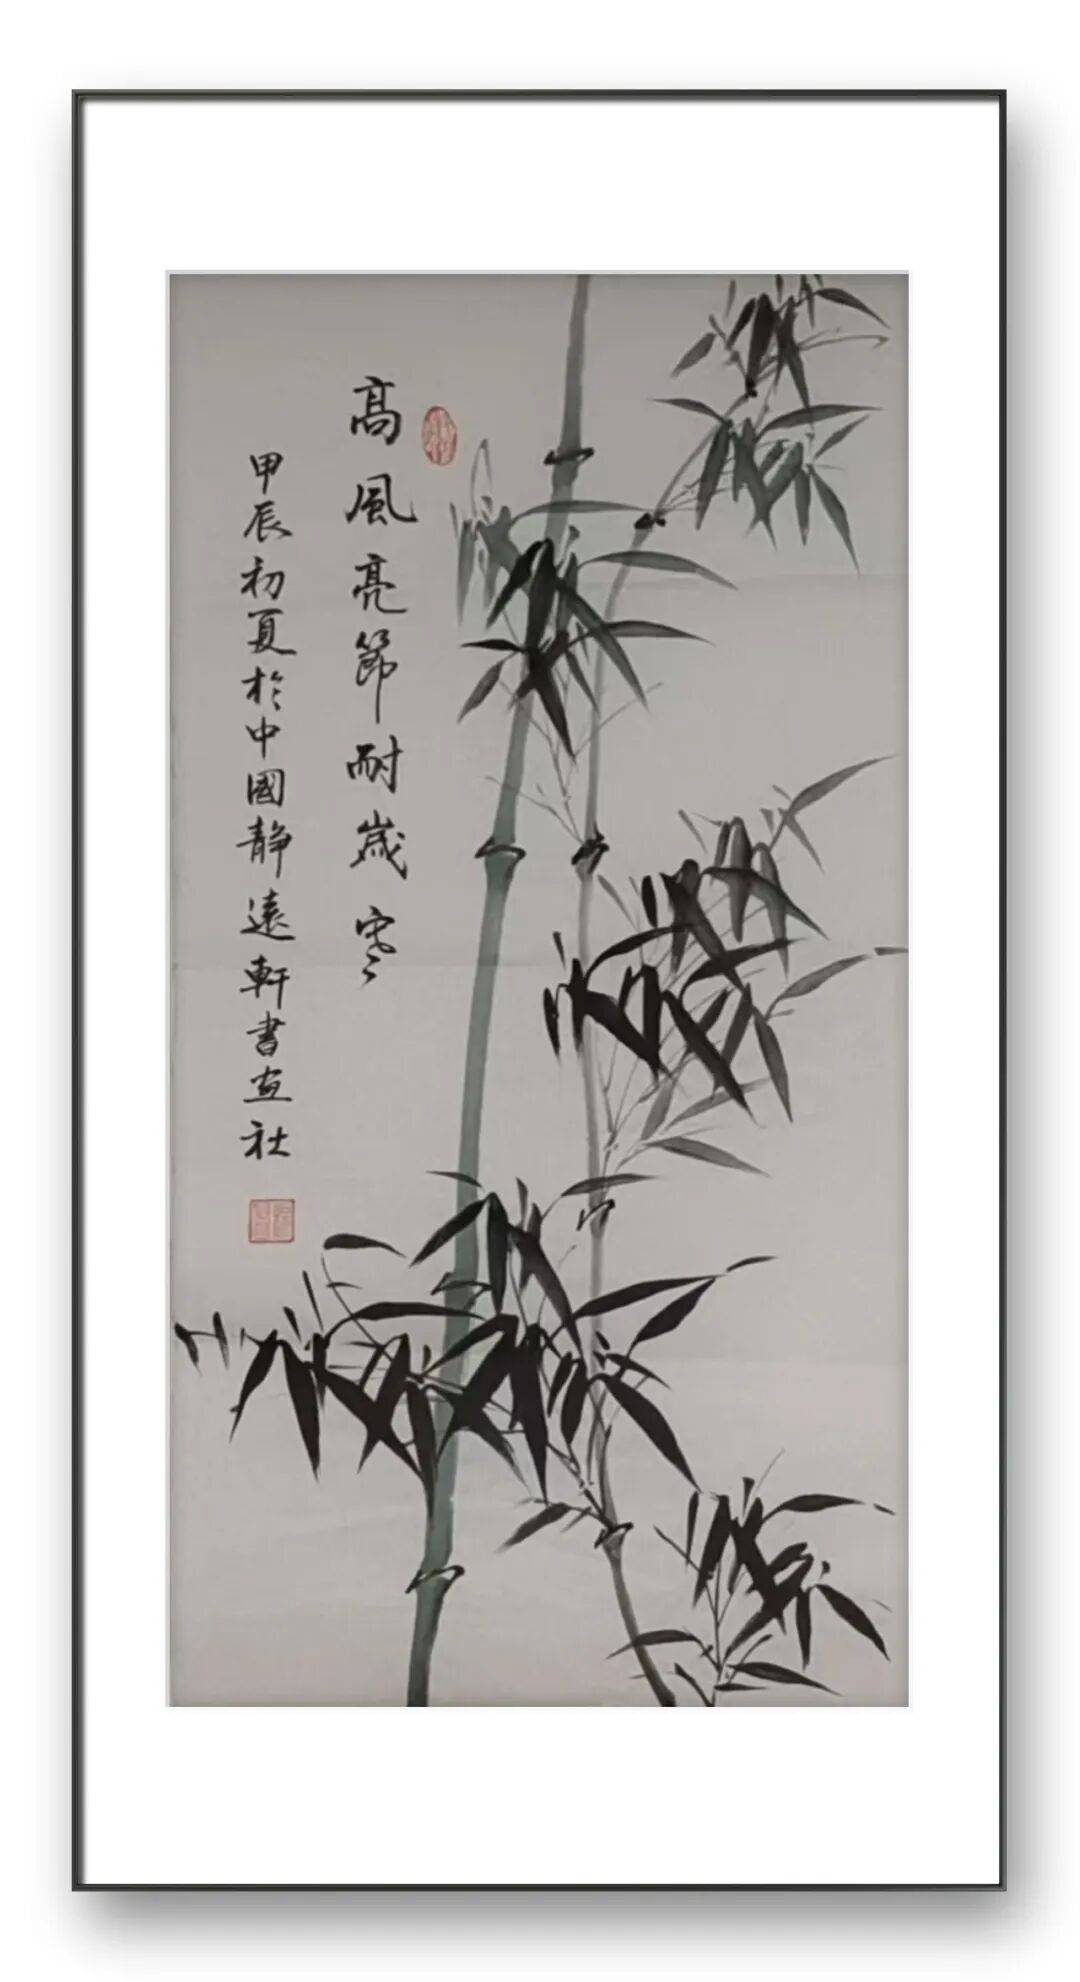 高風亮節耐歲寒
甲辰初夏於中國静遠軒書画社